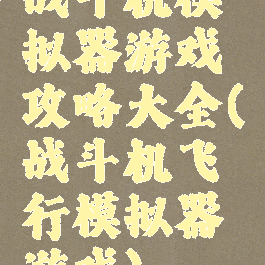 战斗机模
拟器游戏
攻略大全(
战斗机飞
行模拟器
游戏)